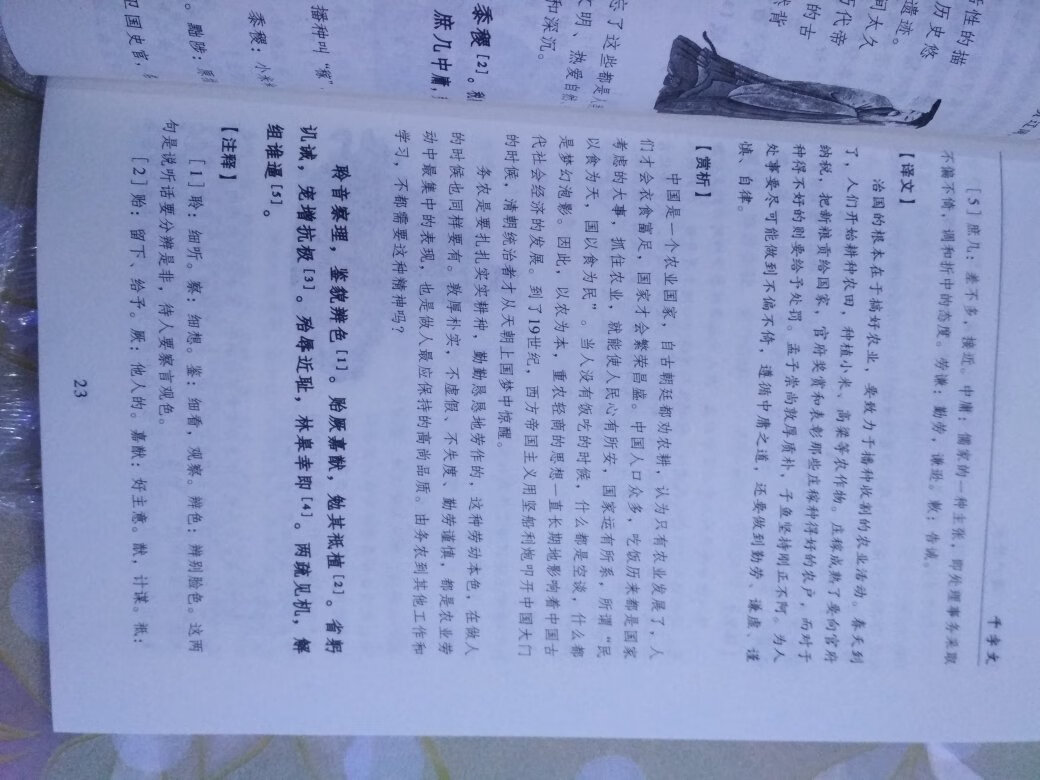 性的描
历史悠
遗迹。
间太久
历代帝
的古
背
忘了这些都是人
文明、热爱自然
和深沉。
黍稷[2]。
庶几中庸，
播种叫“稼”
黍稷：小米
黜陟：
卫国史官，
千字文
[5]庶几：差不多，接近。中庸：儒家的一种主张，即处理事务采取
不偏不倚，调和折中的态度。劳谦：勤劳，谦逊。敕：告诫。
【译文】
治国的根本在于搞好农业，要致力于播种收割的农业活动。春天到
了，人们开始耕种农田，种植小米、高粱等农作物。庄稼成熟了要向官府
纳税，把新粮贡给国家，官府奖赏和表彰那些庄稼种得好的农户，而对于
种得不好的则要给予处罚。孟子崇尚敦厚质朴，子鱼坚持刚正不阿。为人
处事要尽可能做到不偏不倚，遵循中庸之道，还要做到勤劳、谦虚、谨
慎、自律。
【赏析】
中国是一个农业国家，自古朝廷都劝农耕，认为只有农业发展了，人
们才会衣食富足，国家才会繁荣昌盛。中国人口众多，吃饭历来都是国家
考虑的大事，抓住农业，就能使人民心有所安，国家运有所系，所谓“民
以食为天，国以食为民”。当人没有饭吃的时候，什么都是空谈，什么都
是梦幻泡影。因此，以农为本，重农轻商的思想一直长期地影响着中国古
代社会经济的发展。到了19世纪，西方帝国主义用坚船利炮叩开中国大门
的时候，清朝统治者才从天朝上国梦中惊醒。
务农是要扎扎实实耕种，勤勤恳恳地劳作的，这种劳动本色，在做人
的时候也同样要有。敦厚朴实，不虚假、不失度、勤劳谨慎，都是农业劳
动中最集中的表现，也是做人最应保持的高尚品质。由务农到其他工作和
学习，不都需要这种精神吗？
聆音察理，鉴貌辨色[1]。贻厥嘉猷，勉其祗植[2]。省躬
讥诫，宠增抗极[3]。殆辱近耻，林皋幸即[4]。两疏见机，解
组谁逼[5]。
【注释】
[1]聆：细听。察：细想。鉴：细看，观察。辨色：辨别脸色。这两
句是说听话要分辨是非，待人要察言观色。
[2]贻：留下、给予。厥：他人的。嘉猷：好主意。猷，计谋。祗：
23